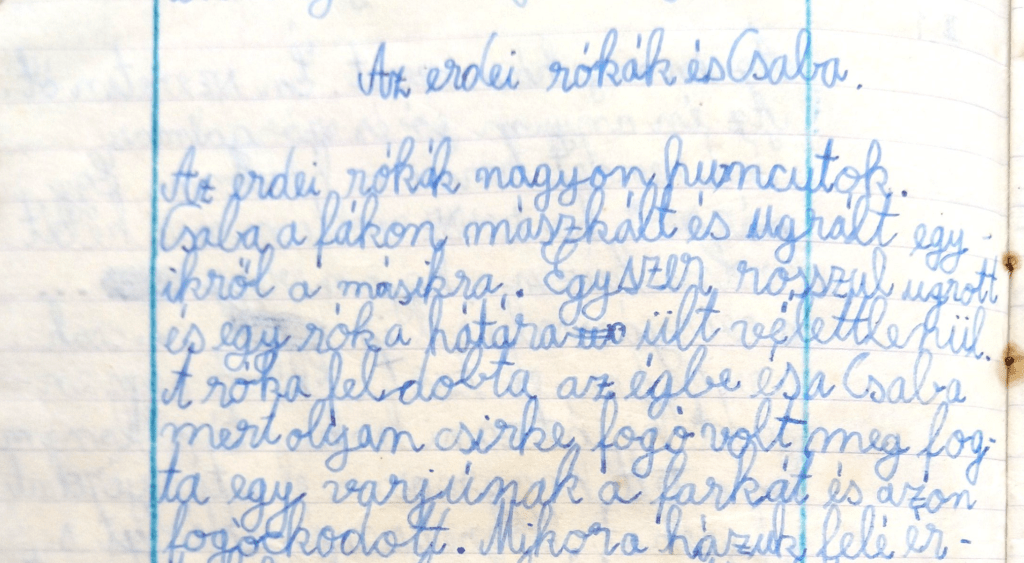 Az erdei rókák és Csaba.
Az erdei rókák nagyon huncutok.
Csaba a fákon mászkált és ugrált egy-
ikről a másikra. Egyszer rosszul ugrott
és egy róka hátára ült véletlepül.
A róka fel dobta az égbe és a Csaba
mert olyan csirke fogó volt meg fog-
ta egy varjúnak a farkát és azon
fogóckodott. Mikor a házuk felé ér-